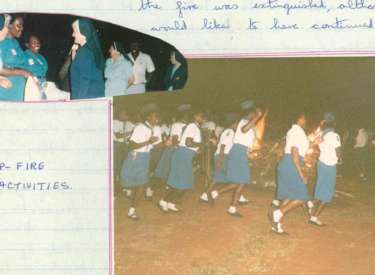 the fire was extinguished, althou
would like to have continued
P-FIRE
ACTIVITIES.